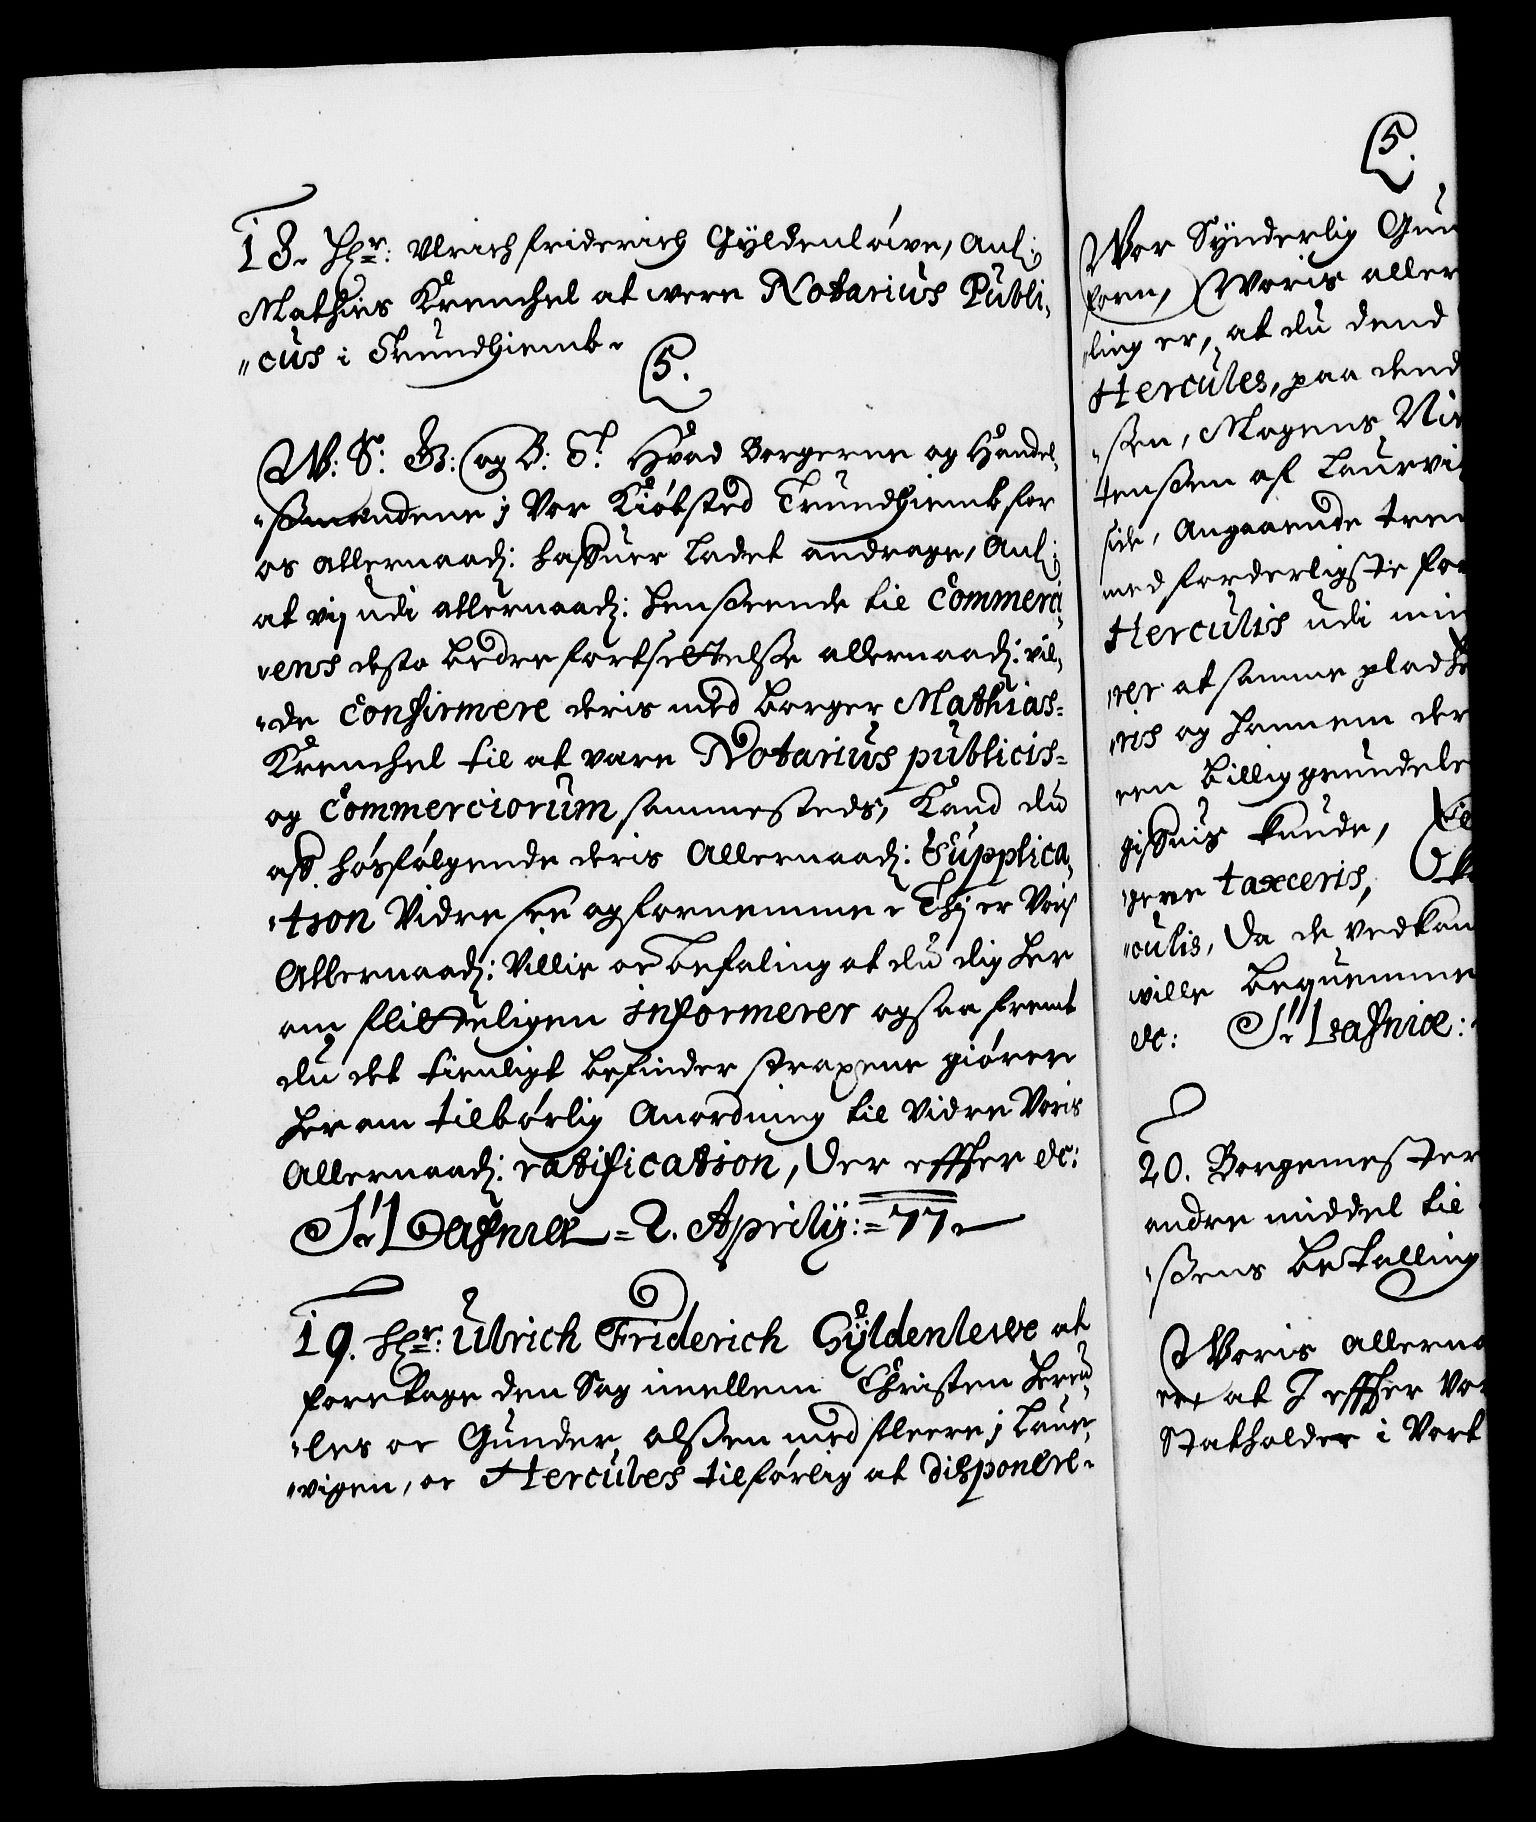 18. Hr: Ulrich friderich Gÿldenløwe, Anl:
Mathias Krenchel at were Notarius Publi,
"cus i Trundhiemb.
5.
W: S: G: og B: T: Hvad Borgerne og Handel,
"ssmendene j Vor Kiøbsted Trundhiemb for
os allernaad: haffuer ladet andrage, Anl:
at vij udi allernaad: henseende til Commerci,
"ens desto bedre fortsettelsse allernaad: vil,
"de Confirmere deris med borger Mathias=
Krenchel til at vare Notarius publicis=
og Commerciorum sammesteds, Kand du
aff hosfølgende deris Allernaad: Supplica,
"tion Vidre see og fornemme. Thj er Vor
Allernaad: Villie oc befaling at du dig her
om flitteligen informerer og saa fremt
du det tienligt befinder strax een giører
her om tilbørlig Anordning til Vidre Voris
Allernaad: ratification, Der effter &c:
Hafniæ = 2. Aprilij: = 77.
19. Hr: Ulrich Friderich Gÿldenlewe at
foretage den Sag imellem Christen Hercu,
"les oc Gunder olssen med fleere j Laur,
"vigen, oc Hercules tilførlig at disponere.
5.
Wor Synderlig Gun
foren, Woris aller
"ling er, at du dend
Hercules, paa dend
"ssen, Mogens Nie
tenssen af Laurvi
side, Angaaende tre
med forderligste for
Herculis udi min
"er at samme pladtz
"ris og hannem der
een billig grundele
gissnis kunde,
"gere taxceris,
"culis, Da de vedkom
wille bequemme
&c: Hafniæ:
20. Borgemester
andre middel til
"ssens betalling
Woris allerna
er at I effter Vor
Statholder i Vort